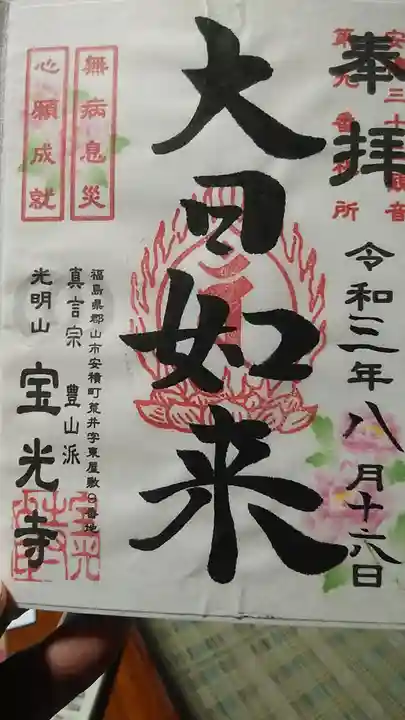 奉拝
安積三十三観音
第九番札所
令和三年八月十六日
大日如来
無病息災
心願成就
福島県郡山市安積町荒井字東屋敷9番地
真言宗 豊山派
光明山 宝光寺